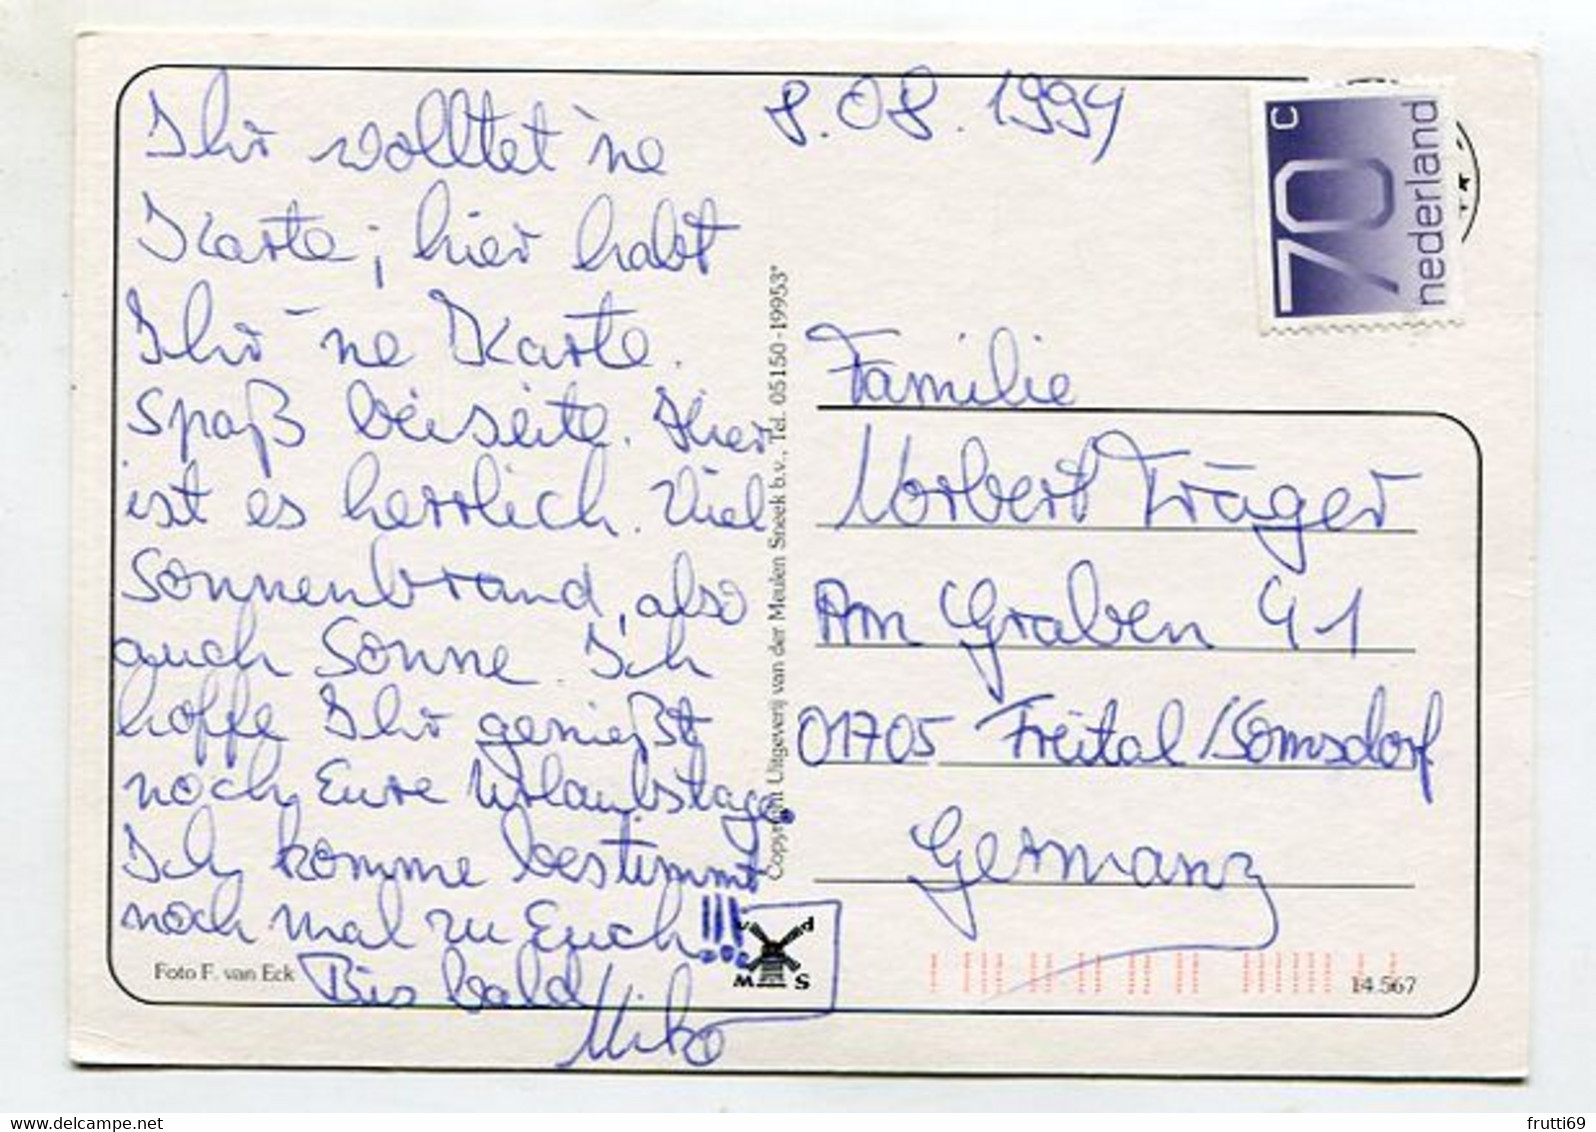 8.08.1994
Ihr wolltet 'ne
Karte; hier habt
Ihr 'ne Karte.
Spaß beiseite. Hier
ist es herrlich. Viel
Sonnenbrand, also
auch Sonne. Ich
hoffe Ihr genießt
noch Eure Urlaubstage.
Ich komme bestimmt
noch mal zu Euch!!!
Bis bald
Foto F. van Eck
Copyright Uitgeverij van der Meulen Sneek b.v., Tel. 05150-19953*
70 C
nederland
Familie
Norbert Träger
Am Graben 41
01705 Freital/Somsdorf
Germany
14.567
www.delcampe.net
frutti69